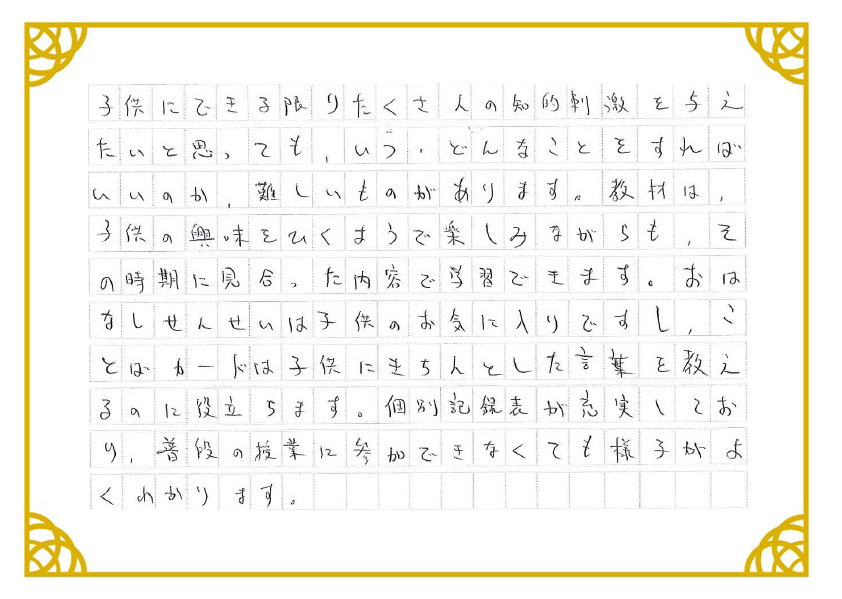 子供にできる限りたくさ人の知的刺激を与え
たいと思っても、いつ・どんなことをすれば
いいのか、難しいものがあります。教材は、
子供の興味をひくようで楽しみながらも、そ
の時期に見合った内容で学習できます。おは
なしせんせいは子供のお気に入りですし、こ
とばカードは子供にきちんとした言葉を教え
るのに役立ちます。個別記録表が充実してお
り、普段の授業に参加できなくても様子がよ
くわかります。